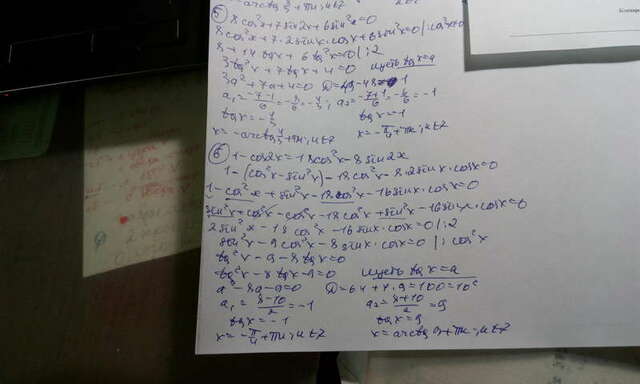 5) 8cos²x+7sin2x+6sin²x=0
8cos²x+7·2sinx·cosx+6sin²x=0 |:cos²x≠0
8+14tgx+6tg²x=0 |:2
3tg²x+7tgx+4=0 пусть tgx=a
3a²+7a+4=0 D=49-48=1
a₁=-7-1/6=-8/6=-4/3; a₂=-7+1/6=-6/6=-1
tgx=-4/3 tgx=-1
x=-arctg 4/3+πn; n∈Z x=-π/4+πn; n∈Z
6) 1-cos2x=18cos²x-8sin2x
1-(cos²x-sin²x)-18cos²x-8·2sinx·cosx=0
1-cos²x+sin²x-18cos²x-16sinx·cosx=0
sin²x+cos²x-cos²x-18cos²x+sin²x-16sinx·cosx=0
2sin²x-18cos²x-16sinx·cosx=0 |:2
sin²x-9cos²x-8sinx·cosx=0 |:cos²x
tg²x-9-8tgx=0
tg²x-8tgx-9=0 пусть tgx=a
a²-8a-9=0 D=64+4·9=100=10²
a₁=8-10/2=-1 a₂=8+10/2=9
tgx=-1 tgx=9
x=-π/4+πn; n∈Z x=arctg9+πn; n∈Z